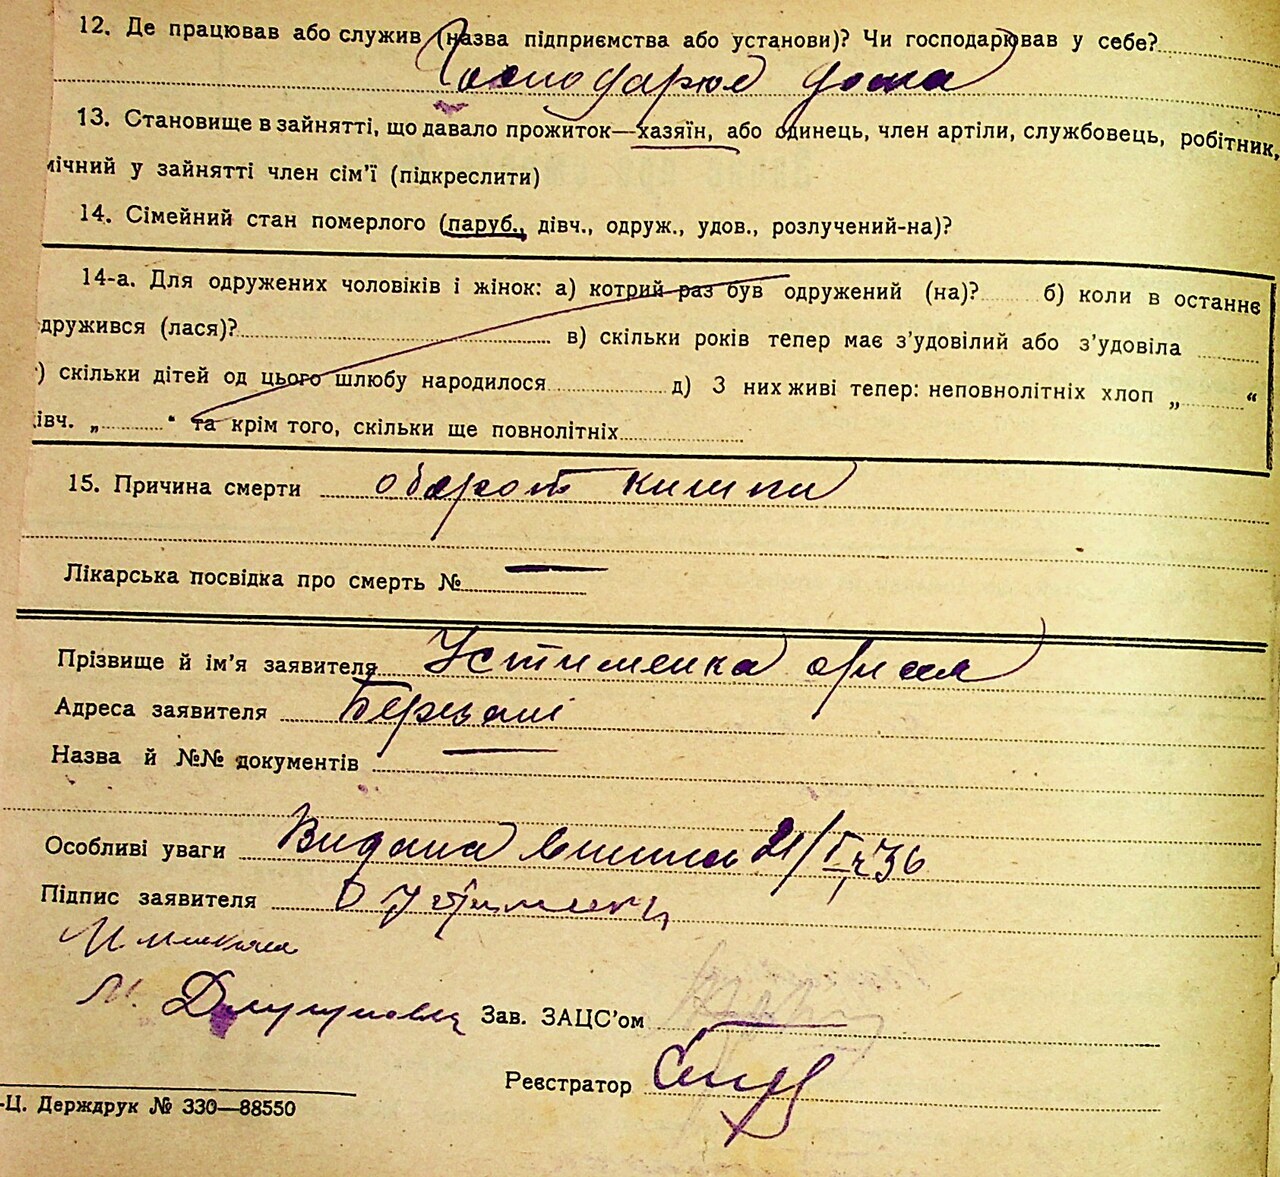 12. Де працював або служив (назва підприємства або установи)? Чи господарював у себе?
Господарює дома
13. Становище в зайнятті, що давало прожиток—хазяїн, або одинець, член артіли, службовець, робітник,
мічний у зайнятті член сім'ї (підкреслити)
14. Сімейний стан померлого (паруб., дівч., одруж., удов., розлучений-на)?
14-а. Для одружених чоловіків і жінок: а) котрий раз був одружений (на)? б) коли в останнє
дружився (лася)? в) скільки років тепер має з'удовілий або з'удовіла
) скільки дітей од цього шлюбу народилося д) З них живі тепер: неповнолітніх хлоп „ “
івч. „ “ та крім того, скільки ще повнолітніх
15. Причина смерти оборот кишки
Лікарська посвідка про смерть № —
Прізвище й ім'я заявителя Устименка
Адреса заявителя
Назва й №№ документів —
Особливі уваги Видана 21/І 36
Підпис заявителя
М.
Зав. ЗАЦС'ом
Реєстратор
-Ц. Держдрук № 330—88550